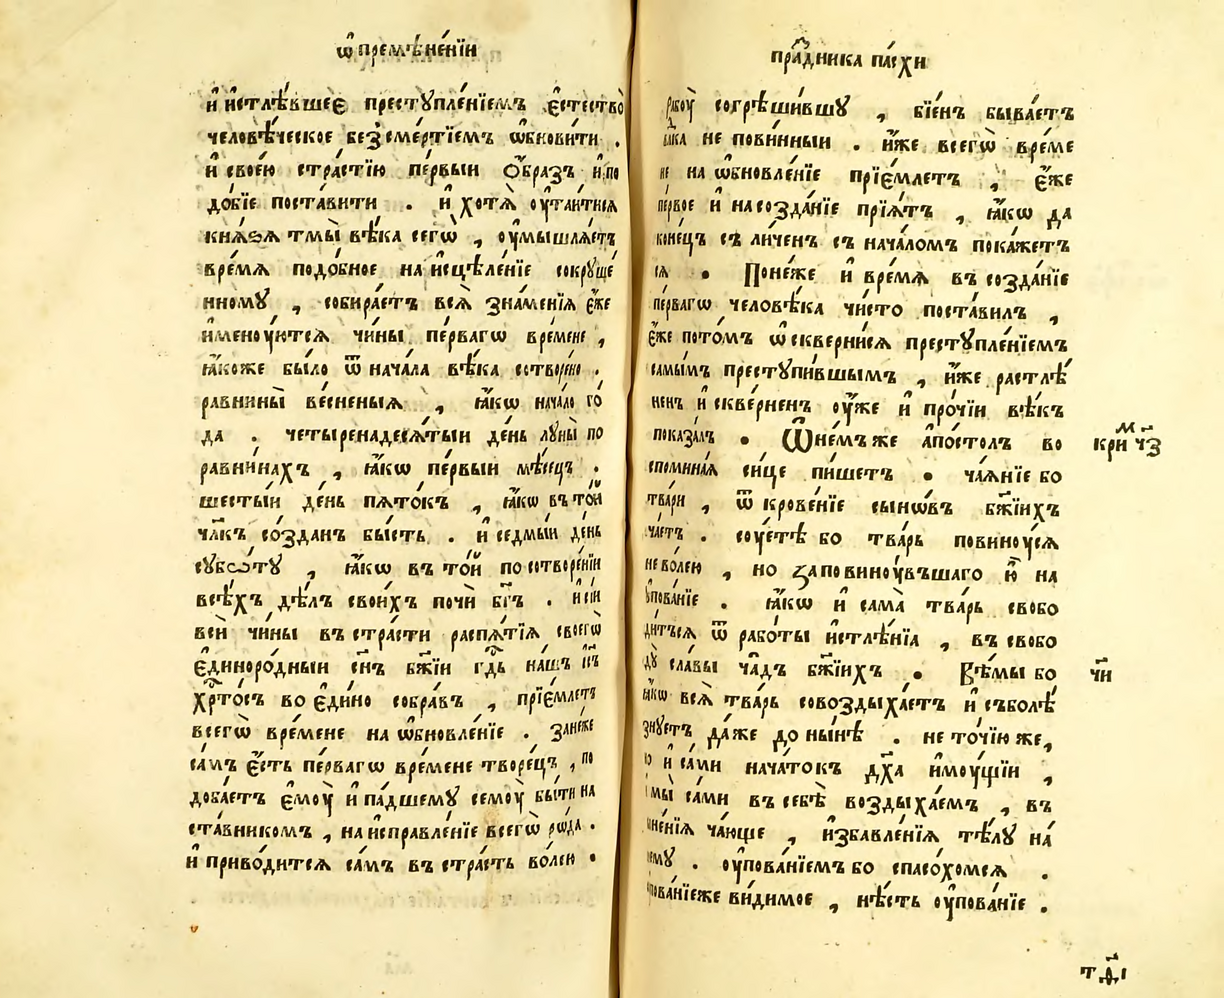 ѡ҆ премѣне́нїи
и҆ и҆стлѣ́вшеє преступле́нїемъ є҆стество̀
человѣ́ческое безсме́ртїемъ ѡ҆бнови́ти .
и҆ свое́ю стра́стїю пе́рвыи о҆́бразъ и҆ по
до́бїе поста́вити . и҆ хотѧ̀ ѹ҆таи́тисѧ
кнѧ́ꙁѧ тмы̀ вѣ́ка сегѡ̀ , ѹ҆мышлѧ́етъ
вре́мѧ подо́бное на и҆сцѣле́нїе сокруше́
нному , собира́етъ всѧ̀ зна́менїѧ є҆́же
и҆менѹ́ютсѧ чи́ны пе́рвагѡ вре́мене ,
ꙗ҆́коже было ѿ нача́ла вѣ́ка сотворено .
равнины̀ ве́сненыѧ , ꙗ҆́кѡ нача́ло го́
да . четыренадесѧ́тыи де́нь луны̀ по
равни́нахъ , ꙗ҆́кѡ пе́рвыи мѣ́сецъ .
шесты́и де́нь пѧто́къ , ꙗ҆́кѡ въ то́й
чл҃къ со́зданъ бы́сть . и҆ седмы́и де́нь
субѡ́ту , ꙗ҆́кѡ въ то́й по сотворе́нїи
всѣ́хъ дѣ́лъ свои́хъ почѝ бг҃ъ . и сїи
всѝ чи́ны въ стра́сти распѧ́тїѧ своегѡ̀
є҆диноро́дныи сн҃ъ бж҃їи гд҃ь на́шъ і҆с҃ъ
хрⷭ҇то́съ во є҆ди́но собра́въ , прїе́млетъ
всегѡ̀ вре́мене на ѡ҆бновле́нїе . зане́же
са́мъ є҆́сть пе́рвагѡ вре́мене творе́цъ , по
доба́етъ є҆мѹ̀ и҆ па́дшему семѹ̀ бы́ти на
ста́вникомъ , на и҆справле́нїе всегѡ̀ рѡ́да .
и҆ приво́дитсѧ са́мъ въ стра́сть во́лею .
пра́здника па́схи
рабѹ̀ согрѣши́вшу , бїе́нъ быва́етъ
не пови́нныи . и҆́же всегѡ̀ вре́ме
не на ѡ҆бновле́нїе прїе́млетъ , є҆́же
пе́рвое и҆ на созда́нїе прїѧ́тъ , ꙗ҆́кѡ да
коне́цъ съли́ченъ съ нача́ломъ пока́жетъ
сѧ . Поне́же и҆ вре́мѧ въ созда́нїе
пе́рвагѡ человѣ́ка чи́сто поста́вилъ ,
є҆́же пото́мъ ѡ҆скверни́сѧ преступле́нїемъ
самѣ́мъ преступи́вшымъ , и҆́же растлѣ́
ненъ и҆ скве́рненъ ѹ҆́же и҆ про́чїи вѣ́къ
показа́лъ . Ѿне́мъже а҆по́столъ во
спомина́ѧ си́це пи́шетъ . ча́ѧнїе бо
тва́ри , ѿкрове́нїе сынѡ́въ бж҃їихъ
ча́етъ . сѹ́етѣ бо тва́рь повинѹ́сѧ
не во́лею , но за повинѹ́въшаго ю҆̀ на
ѹпова́нїе . ꙗ҆́кѡ и҆ сама̀ тва́рь свобо
ди́тъсѧ ѿ рабо́ты и҆стлѣ́нїѧ , въ свобо
ду̀ сла́вы ча́дъ бж҃їихъ . Вѣ́мы бо
ꙗ҆́кѡ всѧ̀ тва́рь совоздыха́етъ и҆ съболѣ́
знуетъ да́же до ны́нѣ . не то́чїю же,
но и҆ са́ми нача́токъ дх҃а и҆мѹ́щїи ,
и мы̀ са́ми въ себѣ̀ воздыха́емъ , въ
сыне́нїѧ ча́юще , и҆збавле́нїѧ тѣ́лу на́
шему . ѹ҆пова́нїемъ бо спасо́хомсѧ .
ѹпова́нїеже ви́димое , нѣ́сть ѹ҆пова́нїе .
ри чз
чи